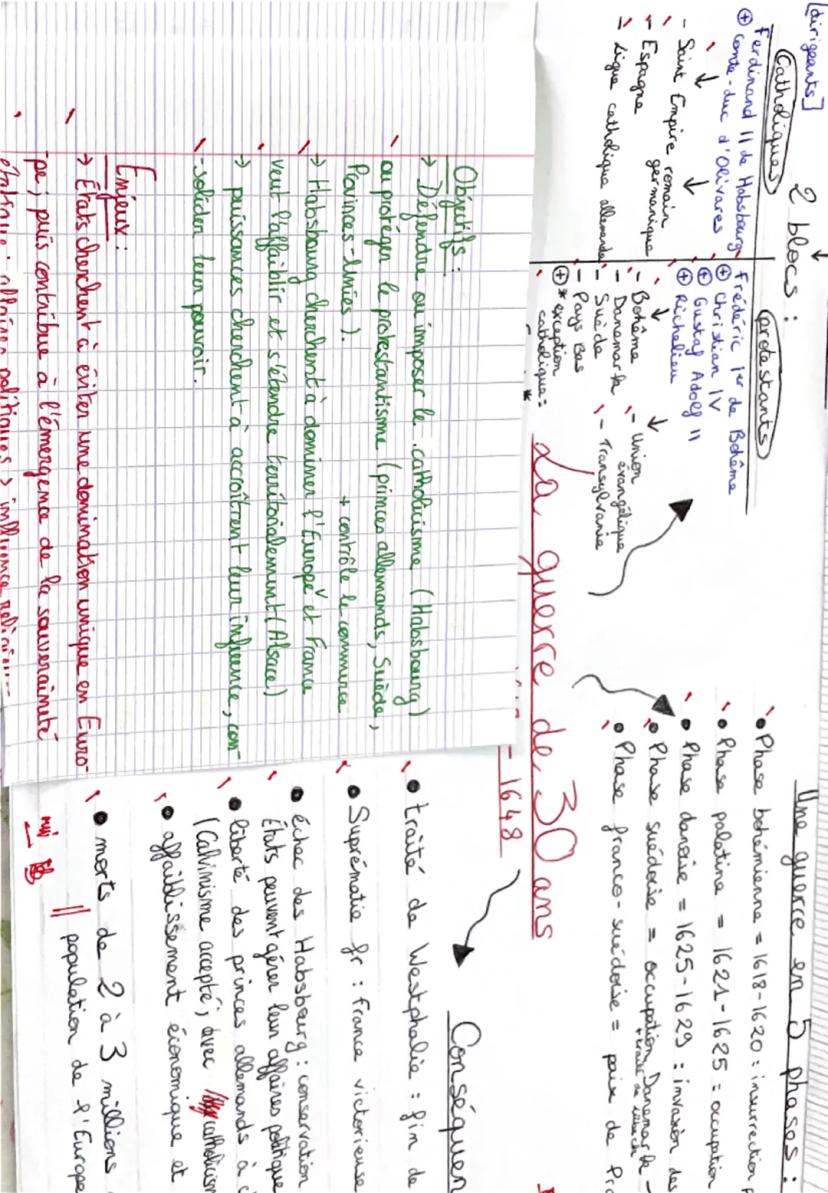 [dirigeants]
2 blocs :
Catholiques
protestants
Ferdinand II de Habsbourg
⊕ comte-duc d'Olivares
Frédéric 1er de Bohême
⊕ Christian IV
⊕ Gustaf Adolf II
⊕ Richelieu
- Saint Empire romain
germanique
- Espagne
- Ligue catholique allemande
- Bohême
- Danemark
- Suède
- Pays Bas
⊕ * exception
catholique :
- Union
évangélique
- Transylvanie
La guerre de 30 ans
- 1648
Une guerre en 5 phases :
• Phase bohémienne = 1618-1620 : insurrection
• Phase palatine = 1621-1625 : occupation
• Phase danoise = 1625-1629 : invasion des
• Phase suédoise = occupation Danemark -
+ traité de
• Phase franco-suédoise = paix de
Objectifs :
→ Défendre ou imposer le catholicisme (Habsbourg)
ou protéger le protestantisme (princes allemands, Suède,
Provinces-Unies).
+ contrôle le commerce
→ Habsbourg cherchent à dominer l'Europe et France
veut l'affaiblir et s'étendre territorialement (Alsace)
→ puissances cherchent à accroîtrent leur influence, con-
-solider leur pouvoir.
Enjeux :
→ États cherchent à éviter une domination unique en Euro-
-pe ; puis contribue à l'émergence de la souveraineté
étatique : affaires politiques > influence
Conséquen
• traité de Westphalie : fin de
• Suprématie fr : France victorieuse
• échec des Habsbourg : conservation
États peuvent gérer leurs affaires politique
• liberté des princes allemands à
(Calvinisme accepté ; avec
• affaiblissement économique et
• morts de 2 à 3 millions
population de l'Europe